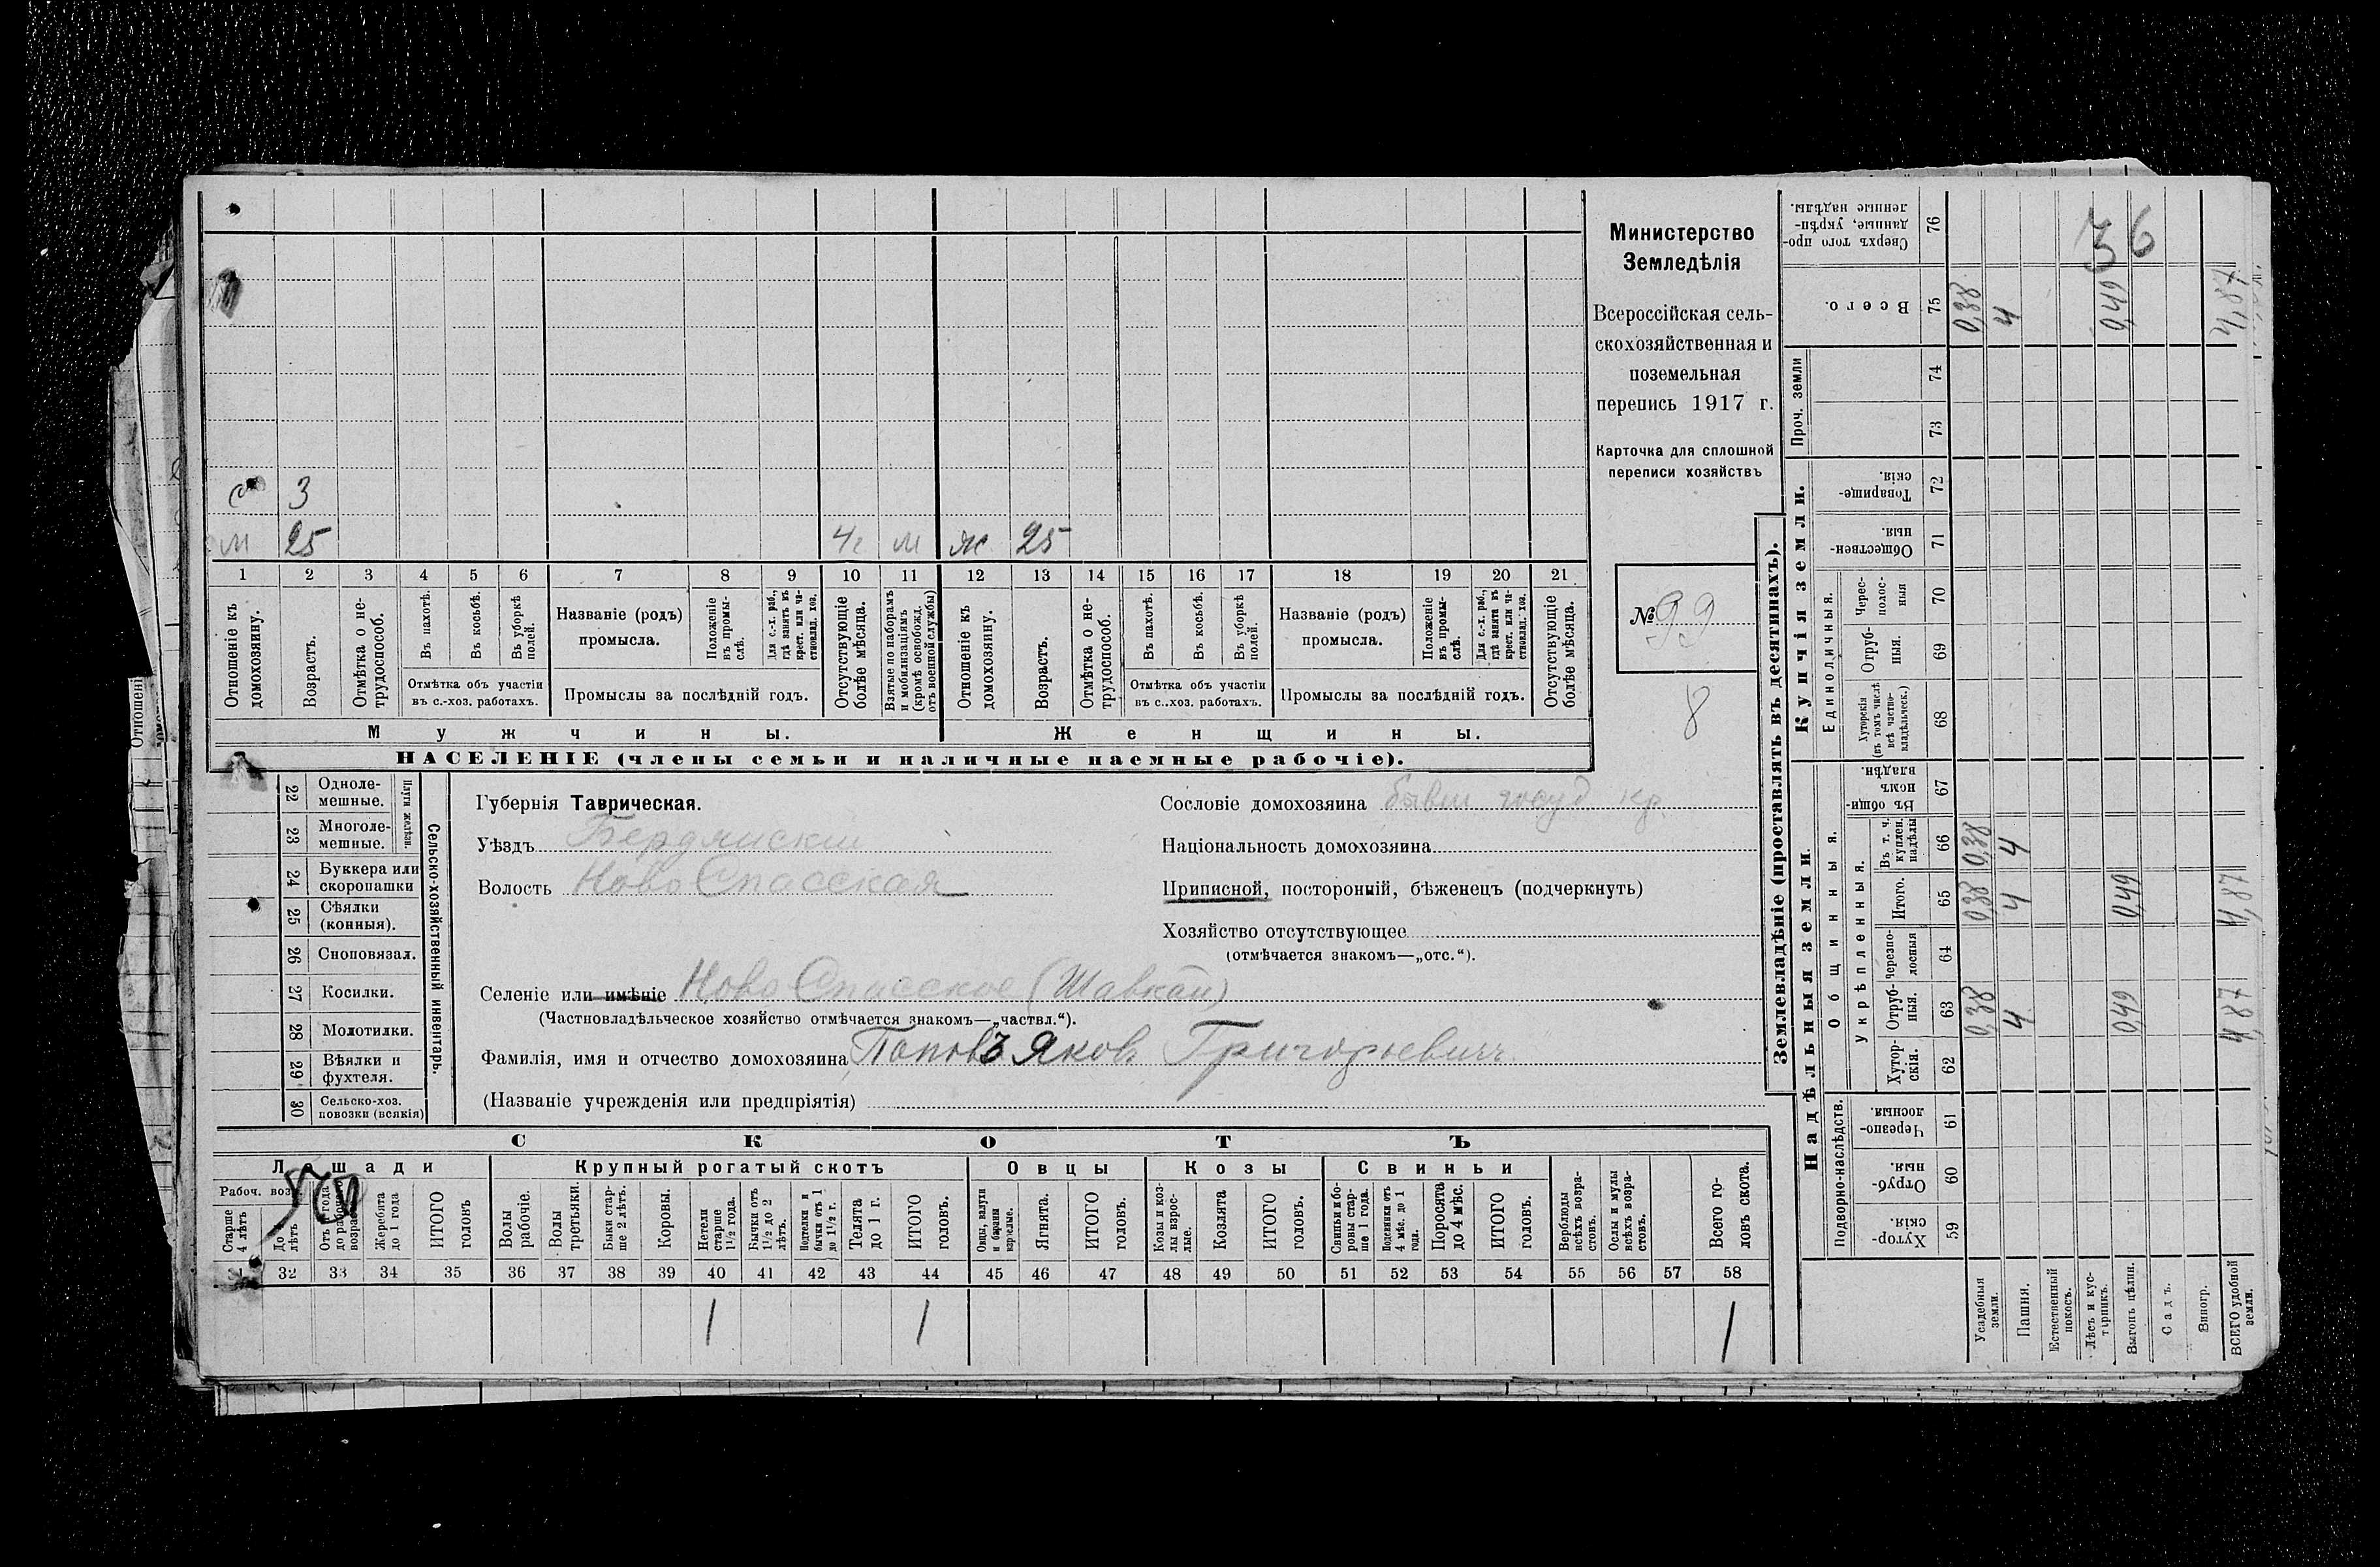 с 3
м 25 4г м ж 25
1 2 3 4 5 6 7 8 9 10 11 12 13 14 15 16 17 18 19 20 21
Отношеніе къ домохозяину.
Возрастъ.
Отмѣтка о нетрудоспособ.
Въ пахотѣ.
Въ косьбѣ.
Въ уборкѣ полей.
Отмѣтка объ участіи
въ с.-хоз. работахъ.
Названіе (родъ)
промысла.
Положеніе въ промы-слѣ.
Для с.-х. раб., гдѣ занятъ въ крест. или ча-стновлад. хоз.
Промыслы за послѣдній годъ.
Отсутствующіе болѣе мѣсяца.
Взятые по наборамъ и мобилизаціямъ (кромѣ освобожд. отъ военной службы)
Отношеніе къ домохозяину.
Возрастъ.
Отмѣтка о не-трудоспособ.
Въ пахотѣ.
Въ косьбѣ.
Въ уборкѣ полей.
Отмѣтка объ участіи
въ с..хоз. работахъ.
Названіе (родъ)
промысла.
Положеніе въ промы-слѣ.
Для с.-х. раб., гдѣ занята въ крест. или ча-стновлад. хоз.
Промыслы за послѣдній годъ.
Отсутствующіе болѣе мѣсяца.
Мужчины. Женщины.
НАСЕЛЕНІЕ (члены семьи и наличные наемные рабочіе).
Министерство
Земледѣлія
Всероссійская сель-
скохозяйственная и
поземельная
перепись 1917 г.
Карточка для сплошной
переписи хозяйствъ
№ 99
8
22 Одноле-мешные.
23 Многоле-мешные.
Плуги желѣзн.
24 Буккера или скоропашки
25 Сѣялки (конныя).
26 Сноповязал.
27 Косилки.
28 Молотилки.
29 Вѣялки и фухтеля.
30 Сельско-хоз. повозки (всякія)
Сельско-хозяйственный инвентарь.
Губернія Таврическая.
Уѣздъ Бердянскій
Волость НовоСпасская
Селеніе или имѣніе НовоСпасское (Шавкай)
(Частновладѣльческое хозяйство отмѣчается знакомъ—„частвл.“).
Фамилія, имя и отчество домохозяина Поповъ Яковъ Григорьевичъ
(Названіе учрежденія или предпріятія)
Сословіе домохозяина бывш госуд кр.
Національность домохозяина
Приписной, посторонній, бѣженецъ (подчеркнуть)
Хозяйство отсутствующее
(отмѣчается знакомъ—„отс.“).
СКОТЪ
Лошади Крупный рогатый скотъ Овцы Козы Свиньи
Рабоч. воз
Старше 4 лѣтъ
До лѣтъ
Жеребята до 1 года
ИТОГО головъ
Волы рабочіе.
Волы третьяки.
Быки стар-ше 2 лѣтъ.
Коровы.
Нетели старше 1½ года.
Бычки отъ 1½ до 2 лѣтъ.
Подтелки и бычки отъ 1 до 1½ г.
Телята до 1 г.
ИТОГО головъ.
Овцы, валухи и бараны взрослые.
Ягнята.
ИТОГО головъ.
Козы и коз-лы взрос-лые.
Козлята
ИТОГО головъ.
Свиньи и бо-ровы стар-ше 1 года.
Подсвинки отъ 4 мѣс. до 1 года.
Поросята до 4 мѣс.
ИТОГО головъ.
Верблюды всѣхъ возра-стовъ.
Ослы и мулы всѣхъ возра-стовъ.
Всего го-ловъ скота.
32 33 34 35 36 37 38 39 40 41 42 43 44 45 46 47 48 49 50 51 52 53 54 55 56 57 58
1 1 1
Землевладѣніе (проставлять въ десятинахъ).
Надѣльныя земли
Купчія земли.
Проч. земли
Подворно-наслѣдств.
Общинныя.
Укрѣпленныя.
Единоличныя.
Хутор-скія. 59
Отруб-ныя. 60
Черезпо-лосныя. 61
Хутор-скія. 62
Отруб-ныя. 63
Черезпо-лосныя 64
Итого. 65
Въ т. ч. куплен. надѣлы 66
Въ общи-номъ владѣн. 67
Хуторскія (въ томъ числѣ всѣ частно-владѣльческ.) 68
Отруб-ныя. 69
Черес-полос-ныя 70
Обществен-ныя. 71
Товарище-скія. 72
73
74
Всего. 75
Сверхъ того про-данные, укрѣп-ленные надѣлы. 76
Усадебныя земли. 0,38 0,38 0,38 0,38
Пашня. 4 4 4 4
Естественный покосъ.
Лѣсъ и кус-тарникъ.
Выгонъ цѣлин. 0,49 0,49 0,49
Садъ.
Виногр.
ВСЕГО удобной земли. 4,87 4,87 4,87
36